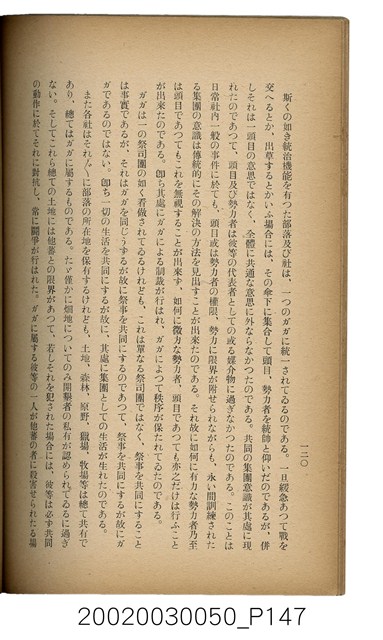 一二〇
斯くの如き統治機能を有つた部落及び社は、一つのガガに統一されてゐるのである。一旦緩急あつて戰を
交へるとか、出草するとかいふ場合には、その傘下に集合して頭目、勢力者を統帥と仰いだのであるが、併
しそれは一頭目の意思ではなく、全體に共通な意思に外ならなかつたのである。共同の集團意識が其處に現
れたのであつて、頭目及び勢力者は彼等の代表者としての或る媒介物に過ぎなかつたのである。このことは
日常社内一般の事件に於ても、頭目或は勢力者の權限、勢力に限界が附せられながらも、永い間訓練された
る集團の意識は傳統的にその解決の方法を見出すことが出來たのである。それ故に如何に有力な勢力者乃至
は頭目であつてもこれを無視することが出來ず、如何に微力な勢力者、頭目であつても亦之だけは行ふこと
が出來たのである。卽ち其處にガガによる制裁が行はれ、ガガによつて秩序が保たれてゐたのである。
ガガは一の祭司團の如く看做されてゐるけれども、これは單なる祭司團ではなく、祭事を共同にすること
は事實であるが、それはガガを同じうするが故に祭事を共同にするのであつて、祭事を共同にするが故にガ
ガであるのではない。卽ち一切の生活を共同にするが故に、其處に集團としての生活が生れたのである。
また各社はそれ〴〵に部落の所在地を保有するけれども、土地、森林、原野、獵場、牧場等は總て共有で
あり、總てはガガに屬するものである。たゞ僅かに畑地についてのみ開墾者の私有が認められてゐるに過ぎ
ない。そしてこれら總ての土地には他蕃との限界があつて、若しそれを犯された場合には、彼等は必ず共同
の動作に於てそれに對抗し、常に鬪爭が行はれた。ガガに屬する彼等の一人が他蕃の者に殺害せられたる場
20020030050_P147